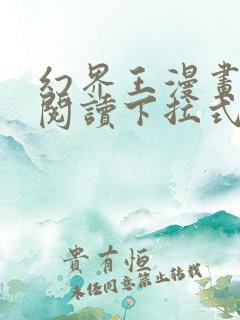 幻界王漫畫
閱讀下拉式
貴有恒
未经同意禁止转载